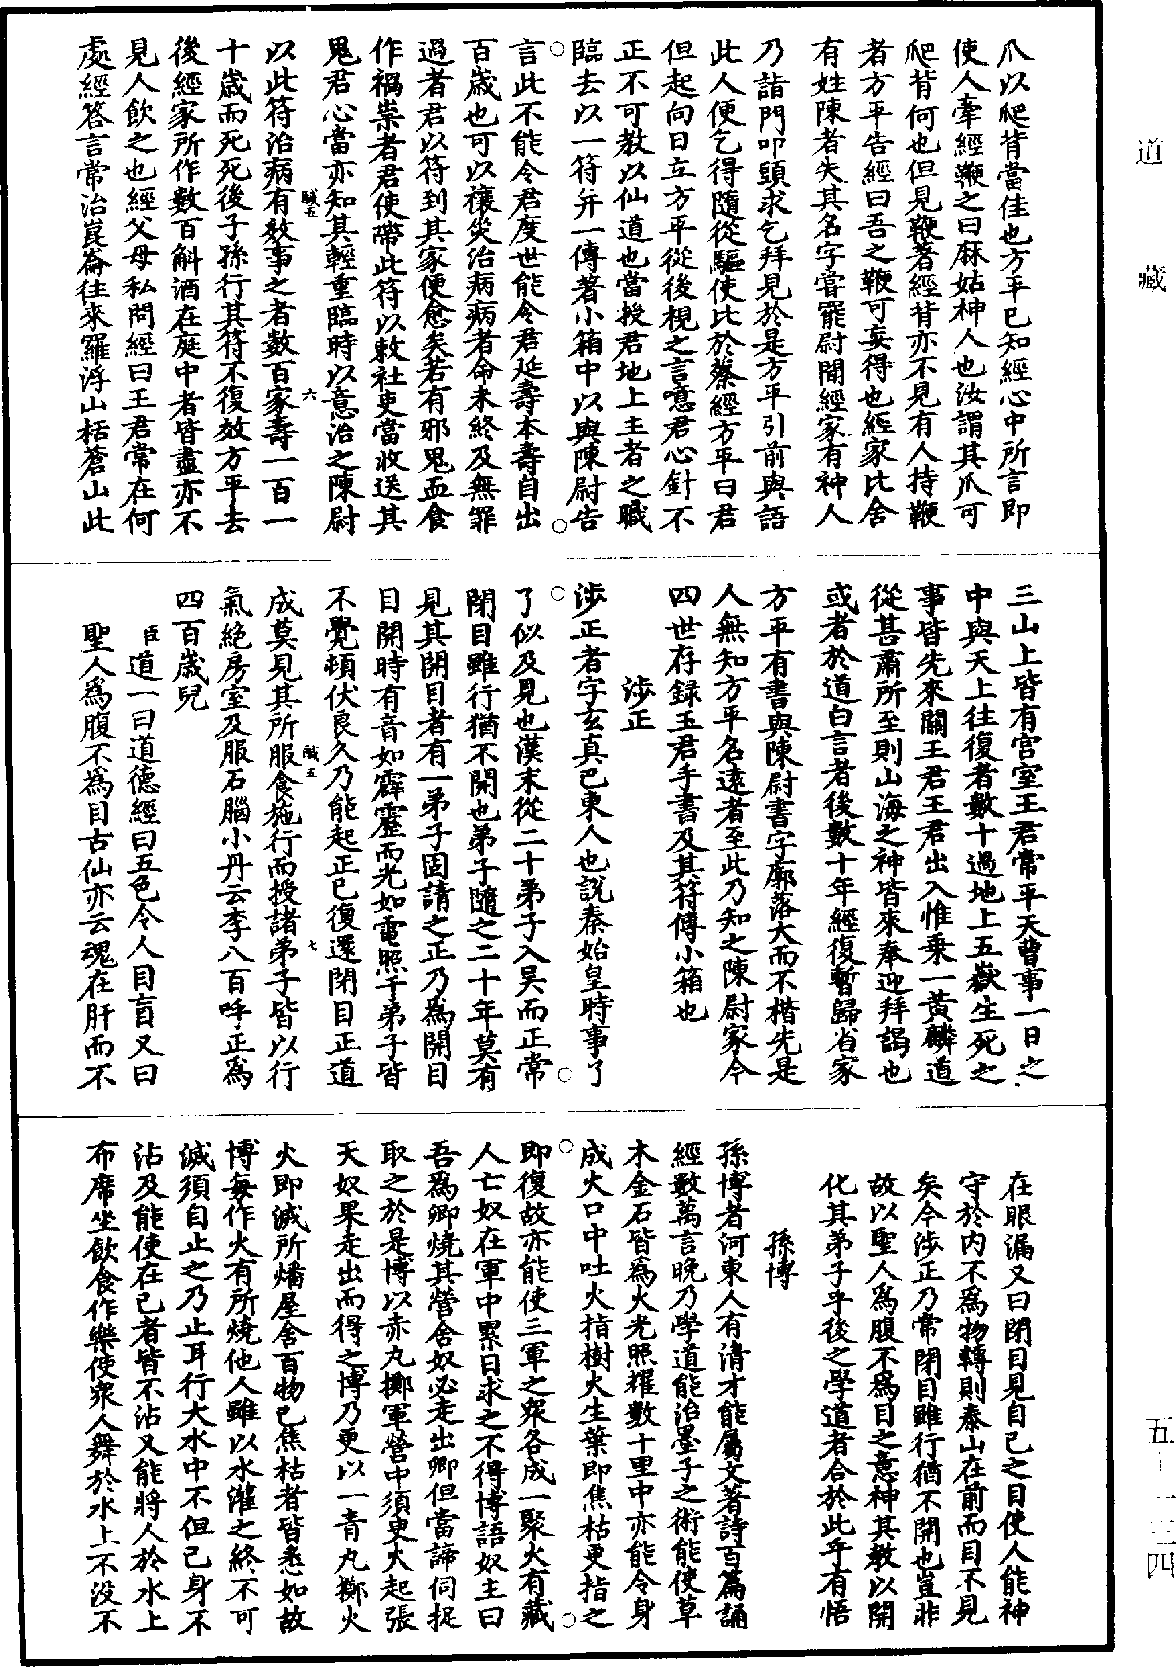 道藏
爪以爬背當佳也方平已知經心中所言即
使人牽經鞭之曰麻姑神人也汝謂其爪可
爬背何也但見鞭著經背亦不見有人持鞭
者方平告經曰吾之鞭可妄得也經家比舍
有姓陳者失其名字嘗罷尉聞經家有神人
乃詣門叩頭求乞拜見於是方平引前與語
此人便乞得隨從驅使比於蔡經方平曰君
但起向日立方平從後視之言噫君心針不
正不可教以仙道也當授君地上主者之職
臨去以一符并一傳著小箱中以與陳尉告
言此不能令君度世能令君延壽本壽自出
百歲也可以禳災治病病者命未終及無罪
過者君以符到其家便愈矣若有邪鬼血食
作禍祟者君使帶此符以敕社吏當收送其
鬼君心當亦知其輕重臨時以意治之陳尉
賊五 六
以此符治病有效事之者數百家壽一百一
十歲而死死後子孫行其符不復效方平去
後經家所作數百斛酒在庭中者皆盡亦不
見人飲之也經父母私問經曰王君常在何
處經答言常治崑崙往來羅浮山括蒼山此
三山上皆有宮室王君常平天曹事一日之
中與天上往復者數十過地上五嶽生死之
事皆先來關王君王君出入惟乘一黃麟道
從甚肅所至則山海之神皆來奉迎拜謁也
或者於道白言者後數十年經復暫歸省家
方平有書與陳尉書字廓落大而不楷先是
人無知方平名遠者至此乃知之陳尉家今
四世存錄王君手書及其符傳小箱也
涉正
涉正者字玄真巴東人也說秦始皇時事了
了似及見也漢末從二十弟子入吳而正常
閉目雖行猶不開也弟子隨之二十年莫有
見其開目者有一弟子固請之正乃為開目
目開時有音如霹靂而光如電照于弟子皆
不覺頓伏良久乃能起正已復還閉目正道
賊五 七
成莫見其所服食施行而授諸弟子皆以行
氣絕房室及服石腦小丹云李八百呼正為
四百歲兒
臣道一曰道德經曰五色令人目盲又曰
聖人為腹不為目古仙亦云魂在肝而不
在眼漏又曰閉目見自己之目使人能神
守於內不為物轉則泰山在前而目不見
矣今涉正乃常閉目雖行猶不開也豈非
故以聖人為腹不為目之意神其教以開
化其弟子乎後之學道者合於此乎有悟
孫博
孫博者河東人有清才能屬文著詩百篇誦
經數萬言晚乃學道能治墨子之術能使草
木金石皆為火光照耀數十里中亦能令身
成火口中吐火指樹火生葉即焦枯更指之
即復故亦能使三軍之眾各成一聚火有藏
人亡奴在軍中累日求之不得博語奴主曰
吾為卿燒其營舍奴必走出卿但當諦伺捉
取之於是博以赤丸擲軍營中須臾火起張
天奴果走出而得之博乃更以一青丸擲火
火即滅所燔屋舍百物已焦枯者皆悉如故
博每作火有所燒他人雖以水灌之終不可
滅須自止之乃止耳行大水中不但己身不
沾及能使在己者皆不沾又能將人於水上
布席坐飲食作樂使眾人舞於水上不沒不
五—二三四